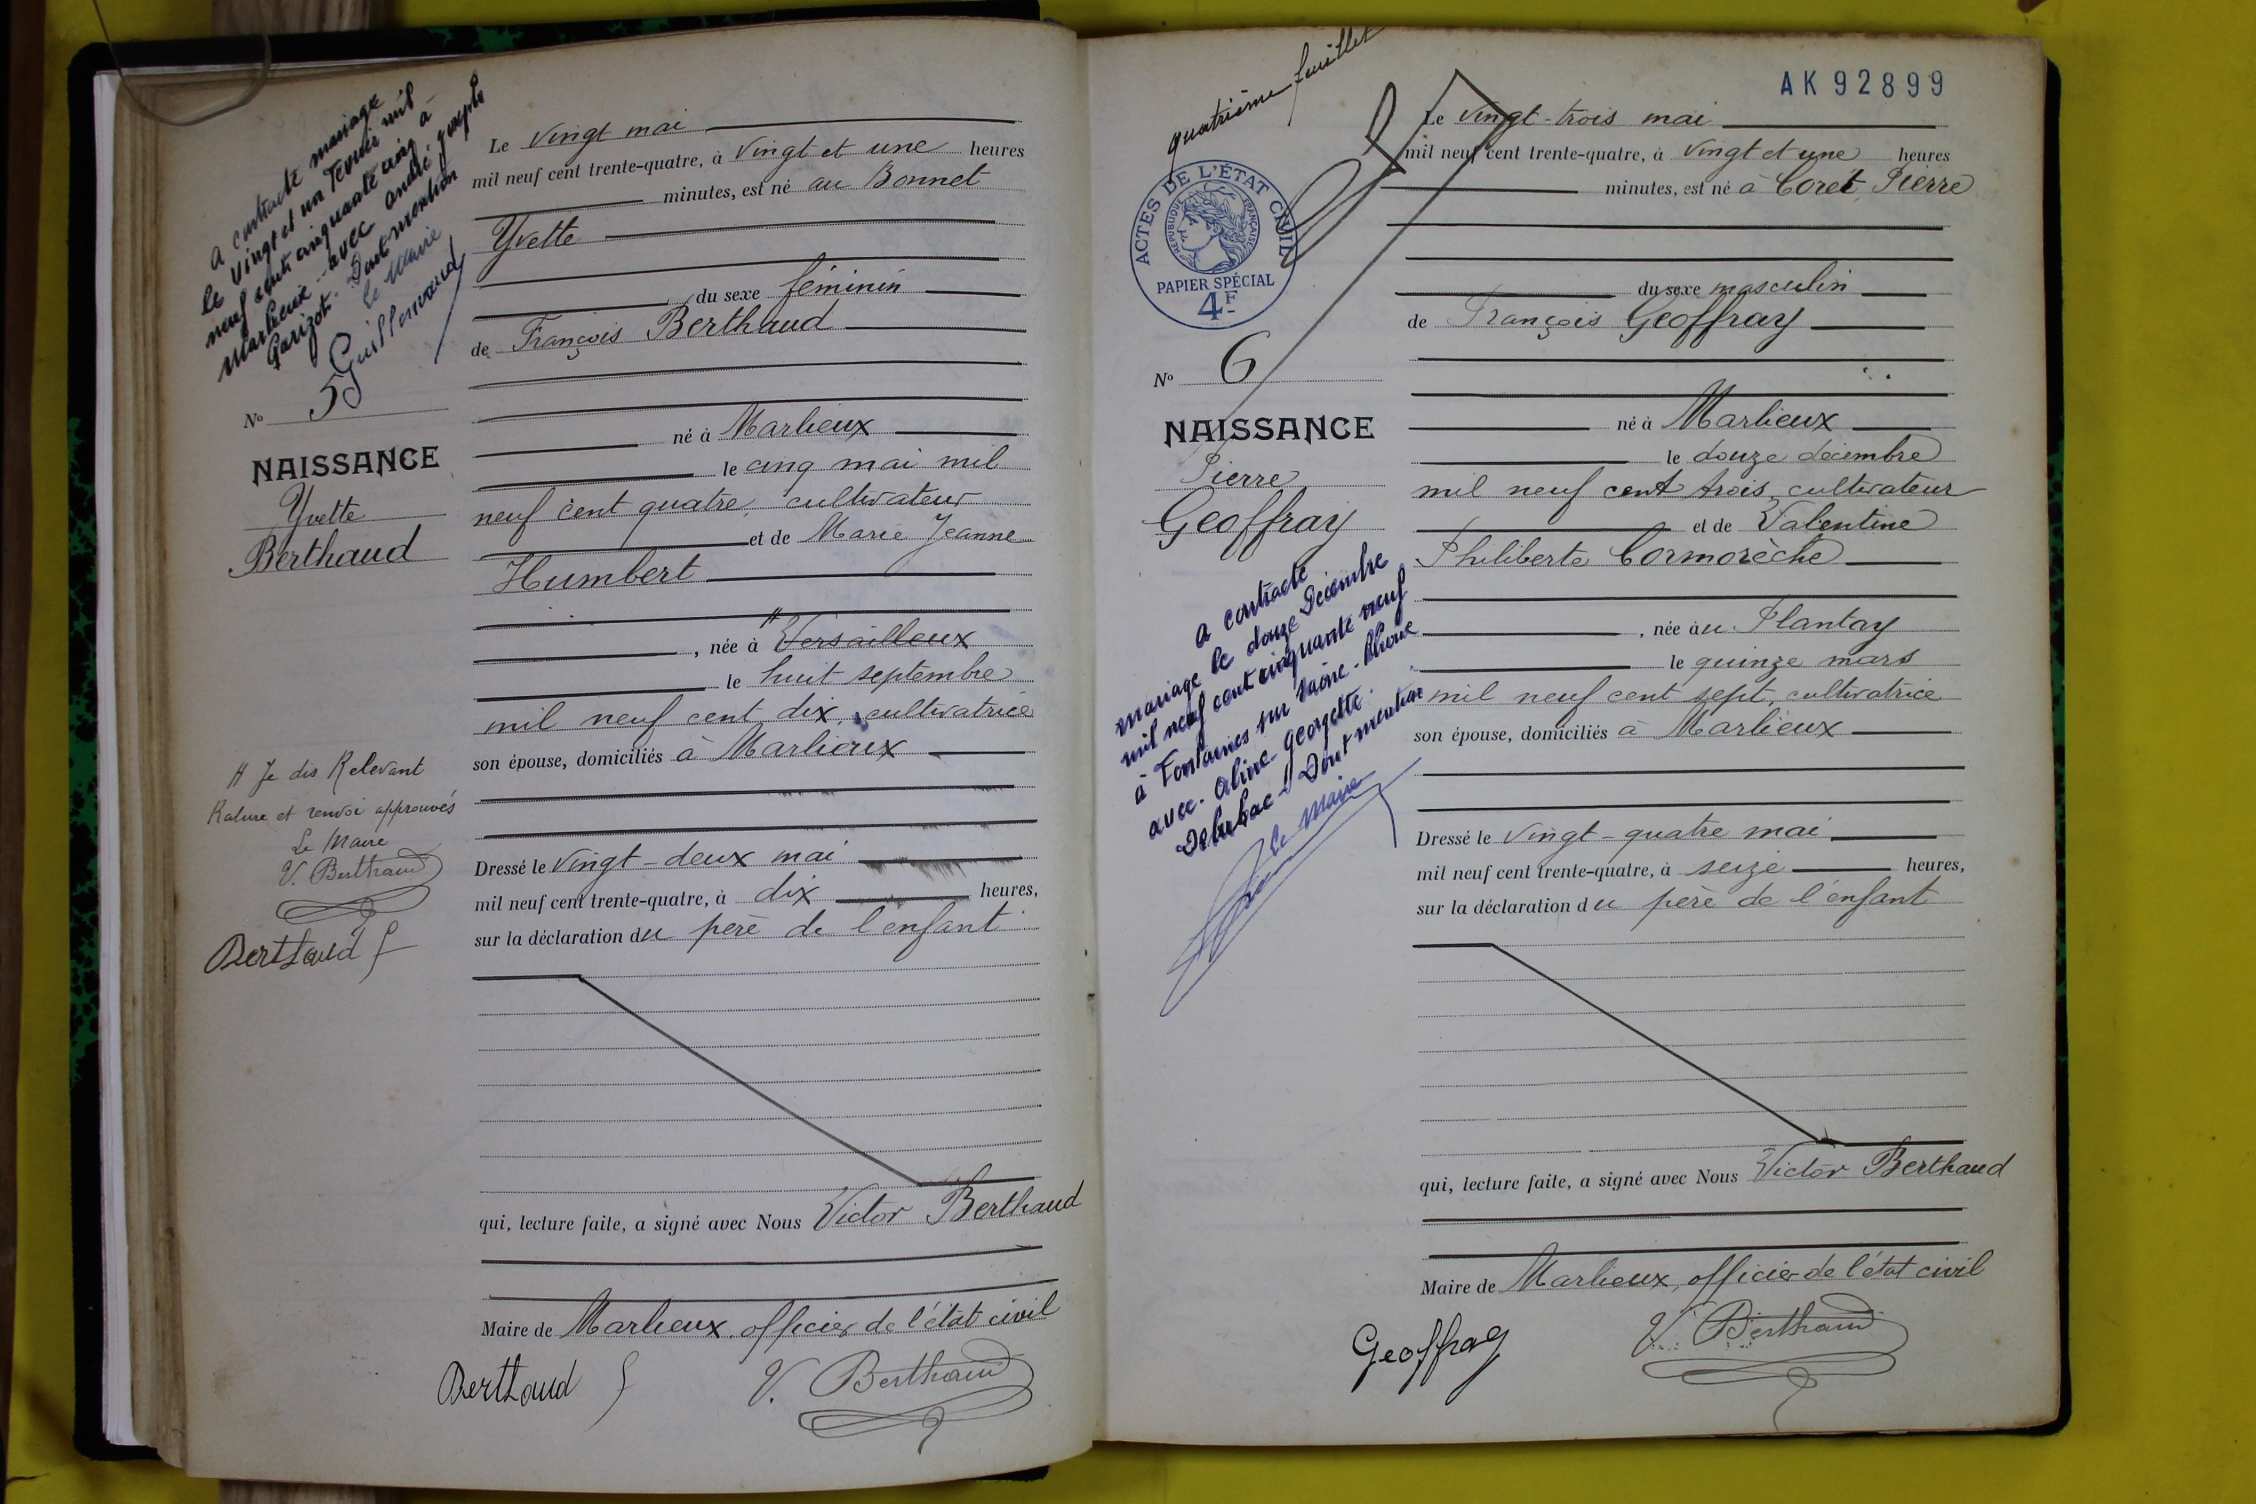 a contracté mariage
le vingt et un février mil
neuf cent cinquante cinq à
Marlieux - avec André Joseph
Garizot. Dont mention
Le Maire
Guillermaud
Le vingt mai
mil neuf cent trente-quatre, à vingt et une heures
minutes, est né au Bonnet
Yvette
du sexe féminin
de François Berthaud
né à Marlieux
le cinq mai mil
neuf cent quatre, cultivateur
et de Marie Jeanne
Humbert
, née à # Versailleux
le huit septembre
mil neuf cent dix, cultivatrice
son épouse, domiciliés à Marlieux
Dressé le vingt-deux mai
mil neuf cent trente-quatre, à dix heures,
sur la déclaration du père de l'enfant
qui, lecture faite, a signé avec Nous Victor Berthaud
Maire de Marlieux, officier de l'état civil
Berthaud f
V. Berthaud
No 5
NAISSANCE
Yvette
Berthaud
# Je dis Relevant
Rature et renvoi approuvés
Le Maire
V. Berthaud
Berthaud f
quatrième feuillet
AK 92899
ACTES DE L'ÉTAT CIVIL
RÉPUBLIQUE FRANÇAISE
PAPIER SPÉCIAL
4F
No 6
NAISSANCE
Pierre
Geoffray
a contracté
mariage le douze Décembre
mil neuf cent cinquante neuf
à Fontaines sur Saône - Rhône
avec Aline Georgette
Dont mention
Le Maire
Le vingt-trois mai
mil neuf cent trente-quatre, à vingt et une heures
minutes, est né à Coret, Pierre
du sexe masculin
de François Geoffray
né à Marlieux
le douze décembre
mil neuf cent trois, cultivateur
et de Valentine
Philiberte Cormorèche
, née au Plantay
le quinze mars
mil neuf cent sept, cultivatrice
son épouse, domiciliés à Marlieux
Dressé le vingt-quatre mai
mil neuf cent trente-quatre, à seize heures,
sur la déclaration du père de l'enfant
qui, lecture faite, a signé avec Nous Victor Berthaud
Maire de Marlieux, officier de l'état civil
Geoffray
V. Berthaud